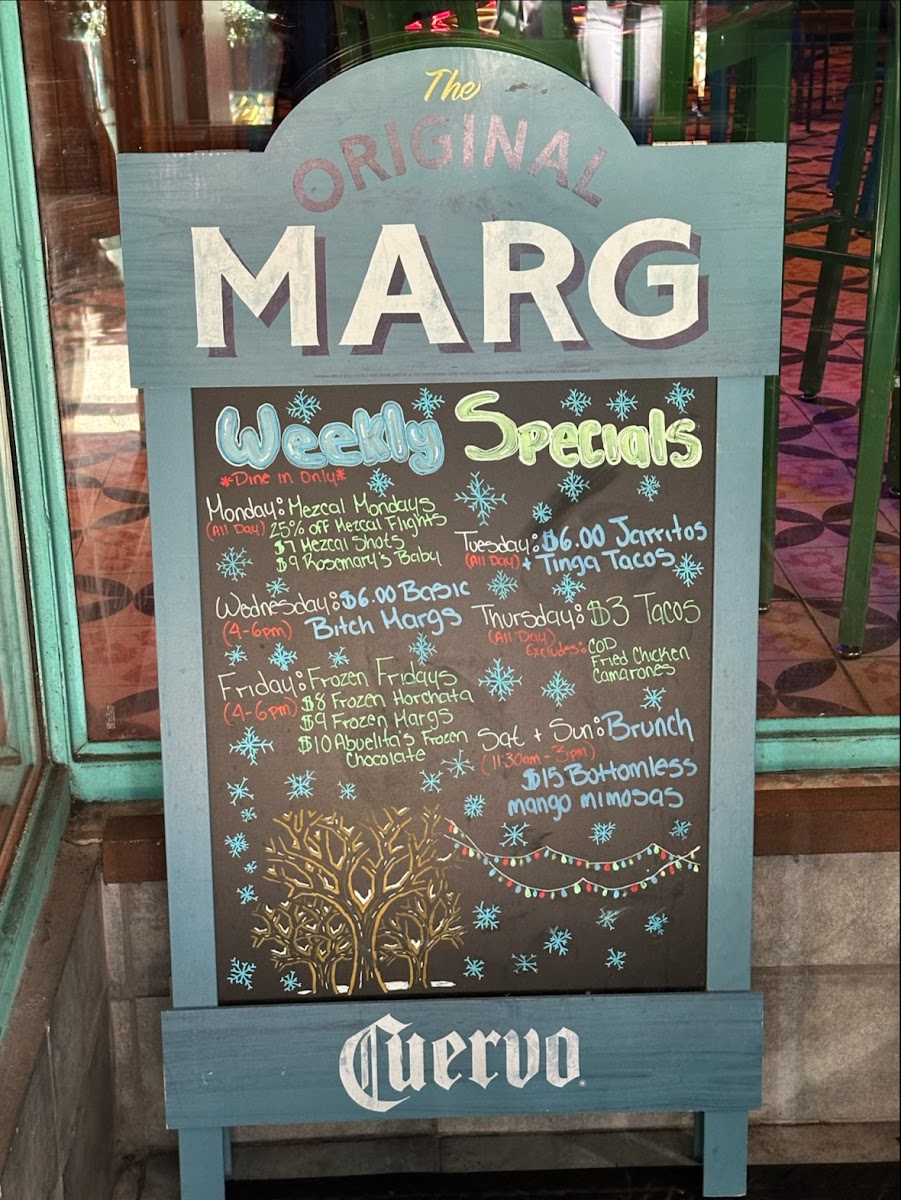 The
ORIGINAL
MARG
Weekly Specials
*Dine in Only*
Monday: Mezcal Mondays
(All Day) 25% off Mezcal Flights
$7 Mezcal Shots
$9 Rosemary's Baby
Tuesday: $6.00 Jarritos
(All Day) + Tinga Tacos
Wednesday: $6.00 Basic
(4-6pm) Bitch Margs
Thursday: $3 Tacos
(All Day)
Excludes: COD
Fried Chicken
Camarones
Friday: Frozen Fridays
(4-6pm) $8 Frozen Horchata
$9 Frozen Margs
$10 Abuelita's Frozen
Chocolate
Sat + Sun: Brunch
(11:30am - 3pm)
$15 Bottomless
mango mimosas
Cuervo